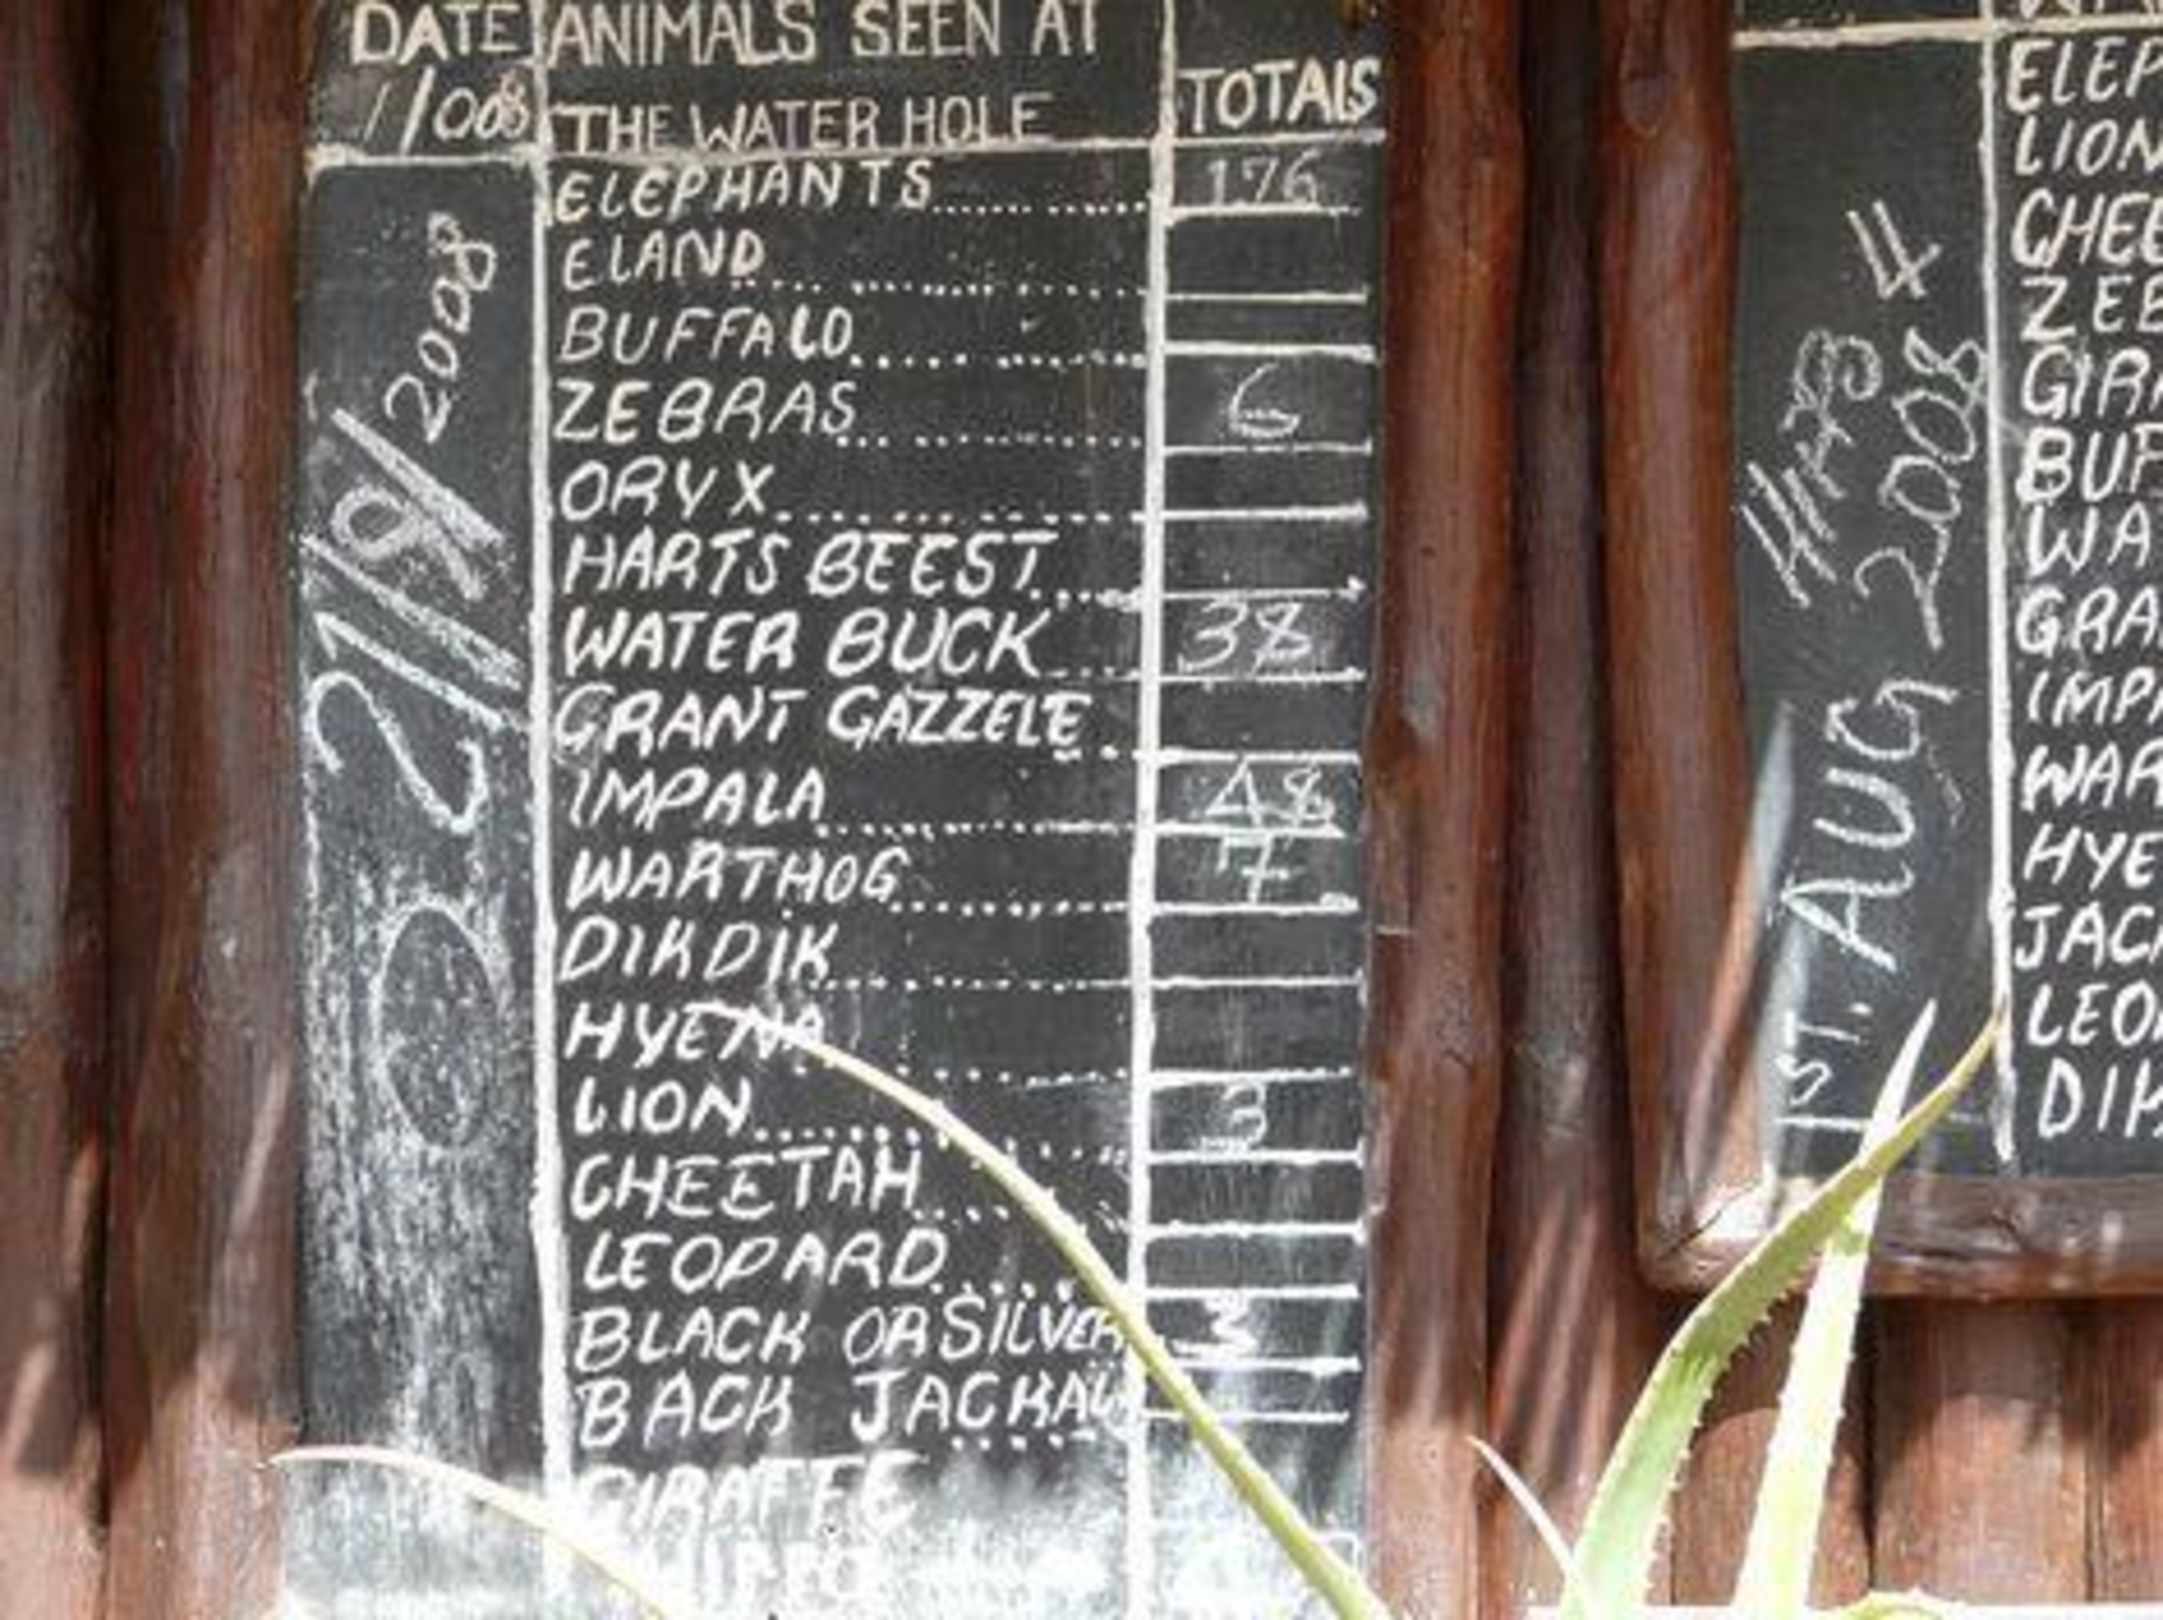 DATE ANIMALS SEEN AT
THE WATER HOLE TOTALS
ELEPHANTS 176
ELAND
BUFFALO
ZEBRAS 6
ORYX
HARTS BEEST
WATER BUCK 38
GRANT GAZZELE
IMPALA 48
WARTHOG 7
DIKDIK
HYENA
LION 3
CHEETAH
LEOPARD
BLACK OR SILVER 3
BACK JACKAL
GIRAFFE
2008
1ST. AUG 2008
ELEP
LION
CHEE
ZEB
GIRA
BUF
WA
GRA
IMPA
WAR
HYE
JACK
LEO
DIK